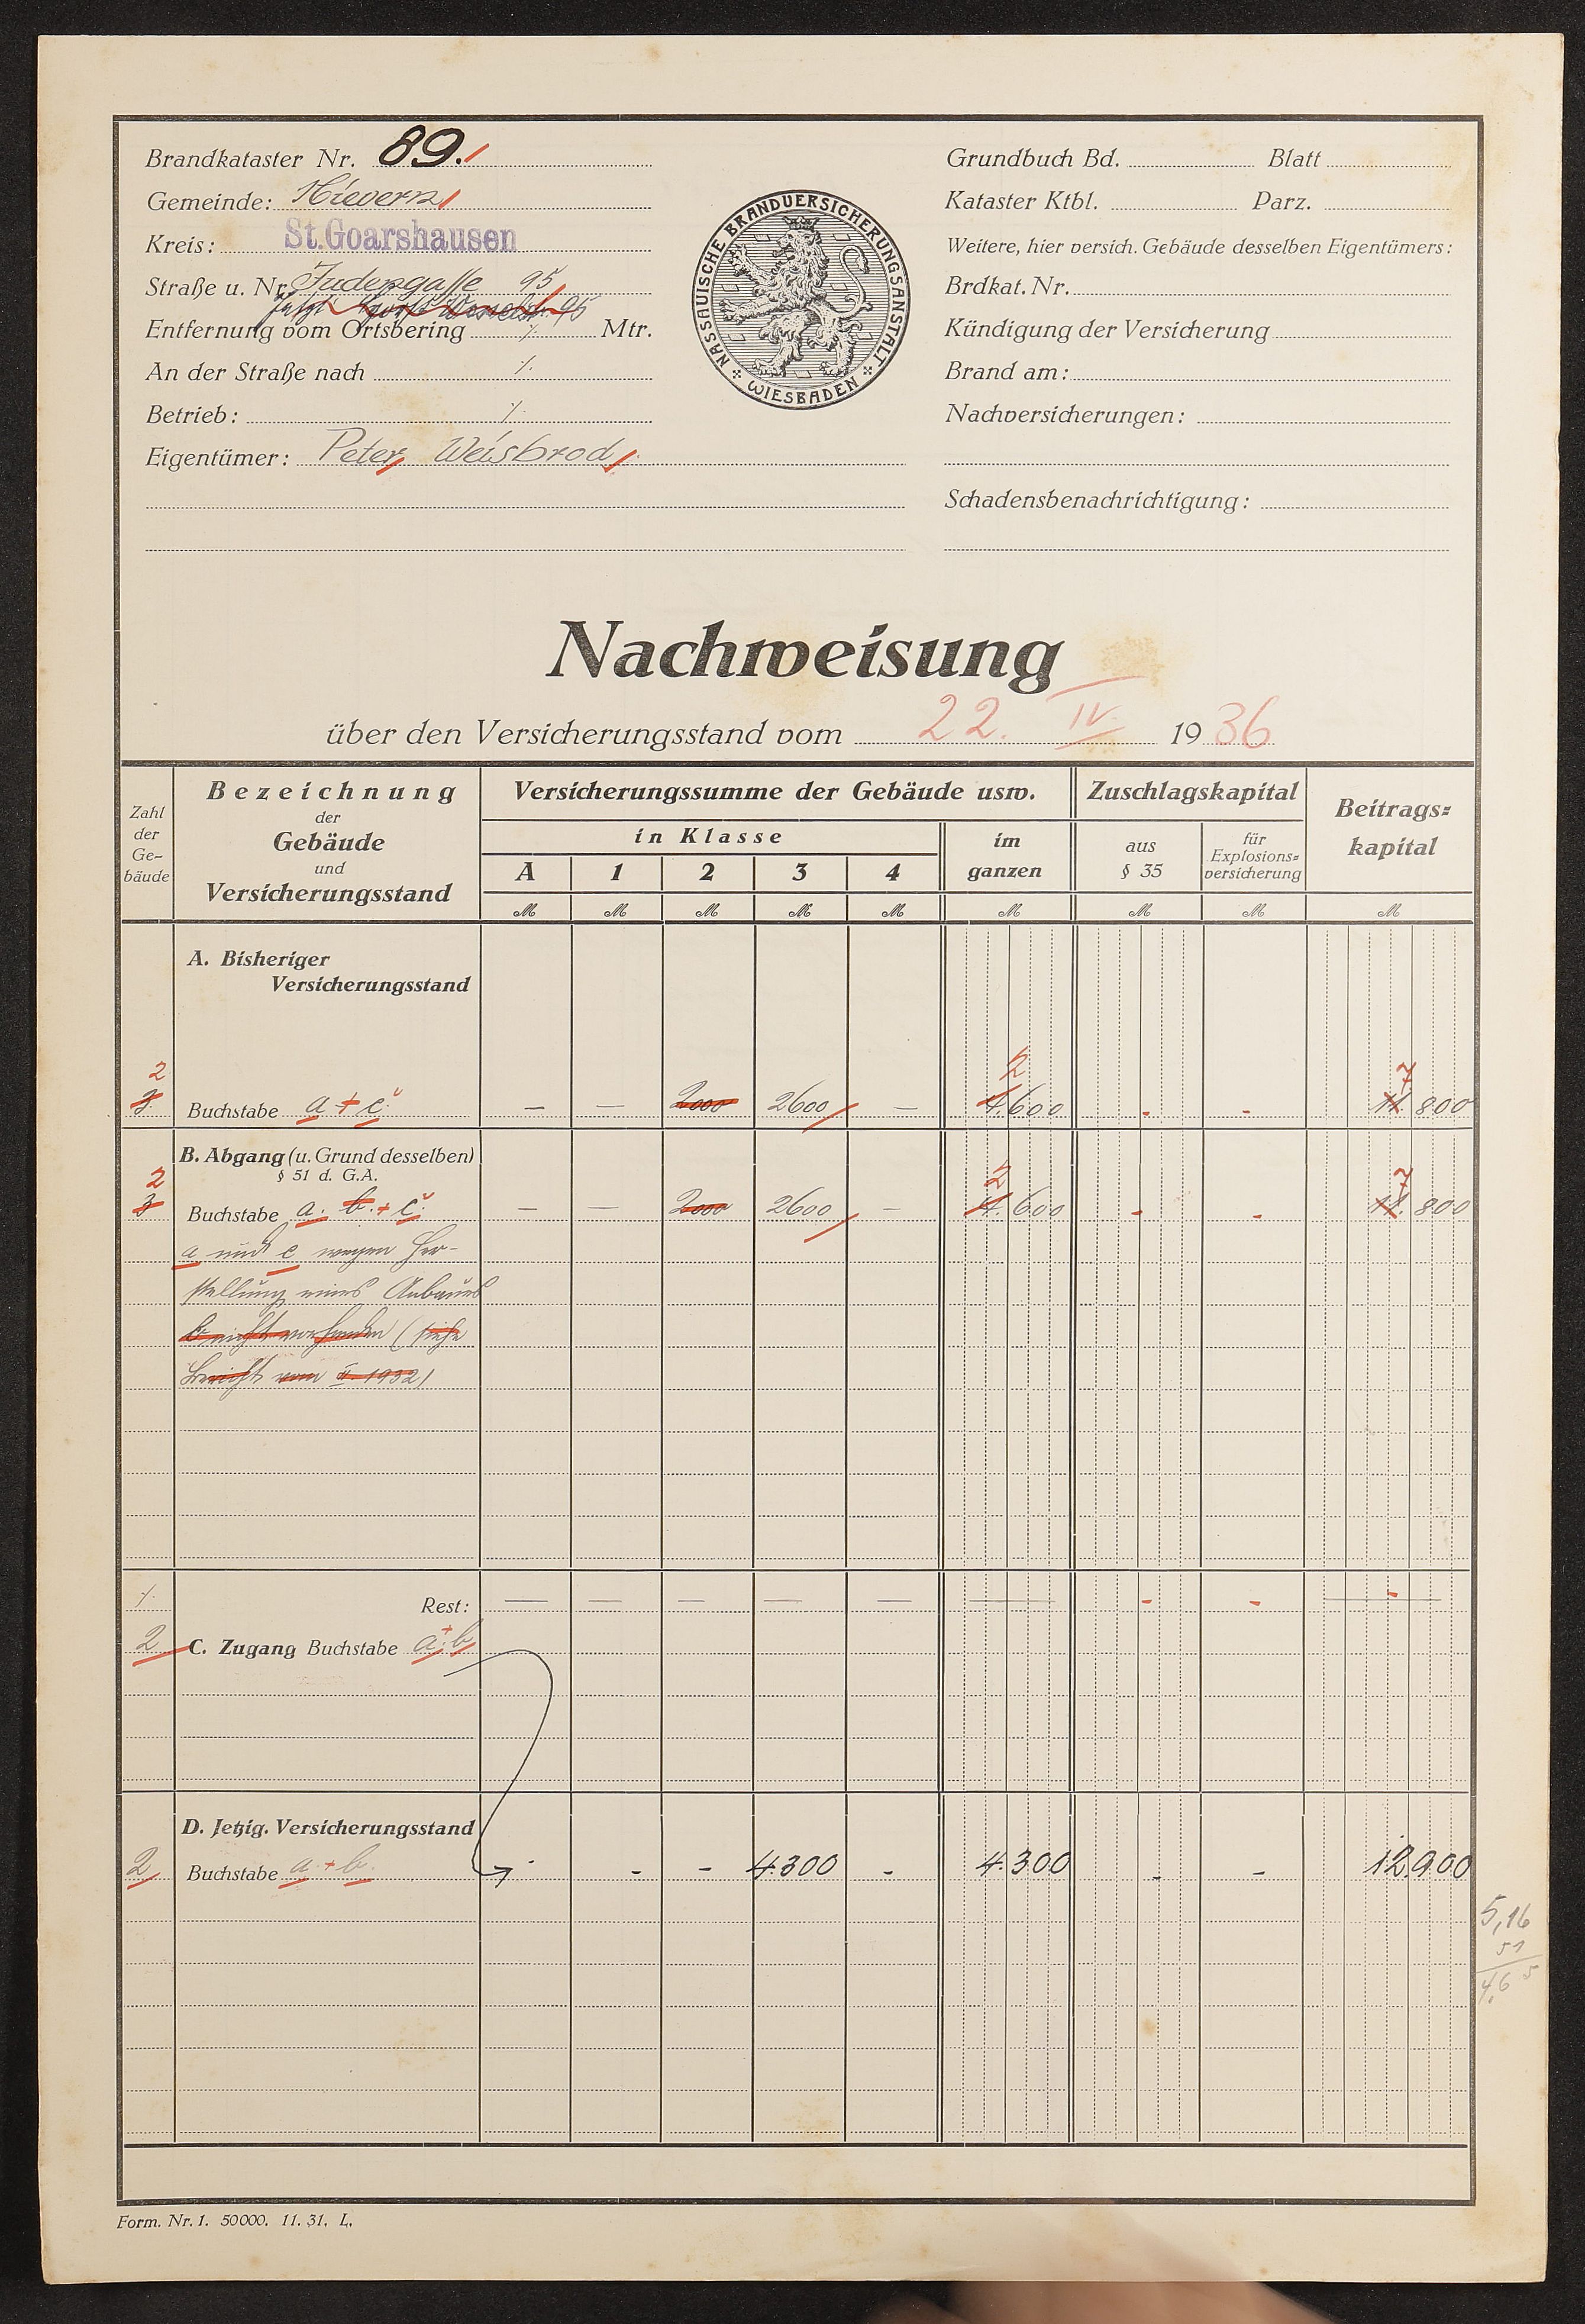 Brandkataster Nr. 89.
Gemeinde: Nievern
Kreis: St. Goarshausen
Straße u. Nr. Judengasse 95
jetzt Horst Wesselstr. 95
Entfernung vom Ortsbering ./. Mtr.
An der Straße nach ./.
Betrieb: ./.
Eigentümer: Peter Weisbrod
NASSAUISCHE BRANDVERSICHERUNGSANSTALT
WIESBADEN
Grundbuch Bd. Blatt
Kataster Ktbl. Parz.
Weitere, hier versich. Gebäude desselben Eigentümers:
Brdkat. Nr.
Kündigung der Versicherung
Brand am:
Nachversicherungen:
Schadensbenachrichtigung:
Nachweisung
über den Versicherungsstand vom 22. IV. 1936
Zahl der Ge-bäude
Bezeichnung der Gebäude und Versicherungsstand
Versicherungssumme der Gebäude usw.
in Klasse
A 1 2 3 4
im ganzen
Zuschlagskapital
aus § 35
für Explosions=versicherung
Beitrags=kapital
M M M M M M M M M
A. Bisheriger
Versicherungsstand
2 7
2
3 Buchstabe a + c — — 2000 2600 — 4.600 - - 11.800
B. Abgang (u. Grund desselben)
§ 51 d. G.A.
2 2 7
3 Buchstabe a. b. + c. — — 2000 2600 — 4.600 - - 11.800
a und c wegen Her-
stellung eines Anbaues
b nicht vorhanden (siehe
Bericht vom II. 1932)
./. Rest: — — — — — — - - -
2 C. Zugang Buchstabe a + b
D. Jetzig. Versicherungsstand
2 Buchstabe a + b. - - - 4.300 - 4.300 - - 12.900
5,16
51
4,65
Form. Nr. 1. 50000. 11. 31. L.